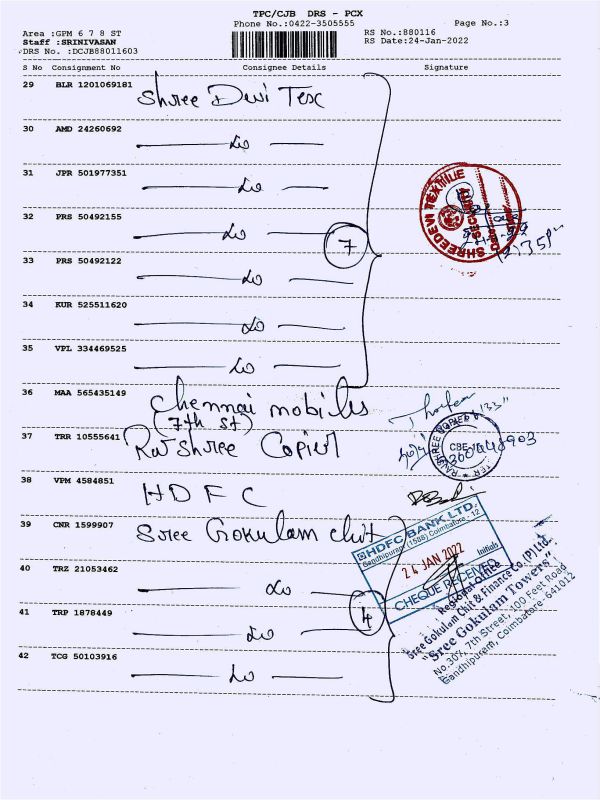 TPC/CJB DRS - PCX
Phone No.:0422-3505555 Page No.:3
Area :GPM 6 7 8 ST RS No.:880116
Staff :SRINIVASAN RS Date:24-Jan-2022
DRS No. :DCJB88011603
S No Consignment No Consignee Details Signature
29 BLR 1201069181 Shree Devi Tex
30 AMD 24260692 do
31 JPR 501977351 do
32 PRS 50492155 do
7
33 PRS 50492122 do
34 KUR 525511620 do
35 VPL 334469525 do
SHREEDEVI TEXTILE
36 MAA 565435149 Chennai mobiles
(7th St)
37 TRR 10555641 Rav Shree Copier
CBE-12
38 VPM 4584851 HDFC
39 CNR 1599907 Sree Gokulam chit
HDFC BANK LTD.
Gandhipuram (1588) Coimbatore - 12
24 JAN 2022
Initials
CHEQUE RECEIVED
40 TRZ 21053462 do
4
41 TRP 1878449 do
42 TCG 50103916 do
Regional Office
Sree Gokulam Chit & Finance Co.(P)Ltd.
"Sree Gokulam Towers"
No.30%, 7th Street, 100 Feet Road
Gandhipuram, Coimbatore-641012